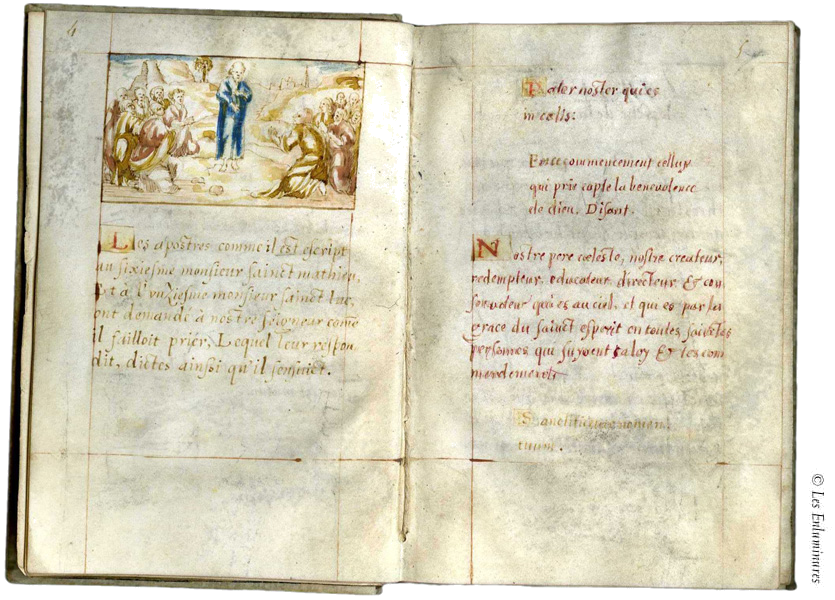 4
Les apostres comme il est escript
au sixiesme monsieur sainct mathieu,
Et a l'onziesme monsieur sainct luc,
ont demandé à nostre seigneur come
il failloit prier, Lequel leur respon
dit, dictes ainsi qu'il sensuict.
5
Pater noster qui es
in cœlis:
En ce commencement celluy
qui prie capte la benevolence
de dieu. Disant.
Nostre pere cœleste, nostre createur,
redempteur, educateur, directeur, Et con
solateur qui es au ciel, et qui es par la
grace du sainct esperit en toutes sainctes
personnes qui suyvent ta loy Et les com
mandements
Sanctificetur nomen
tuum.
© Les Enluminures